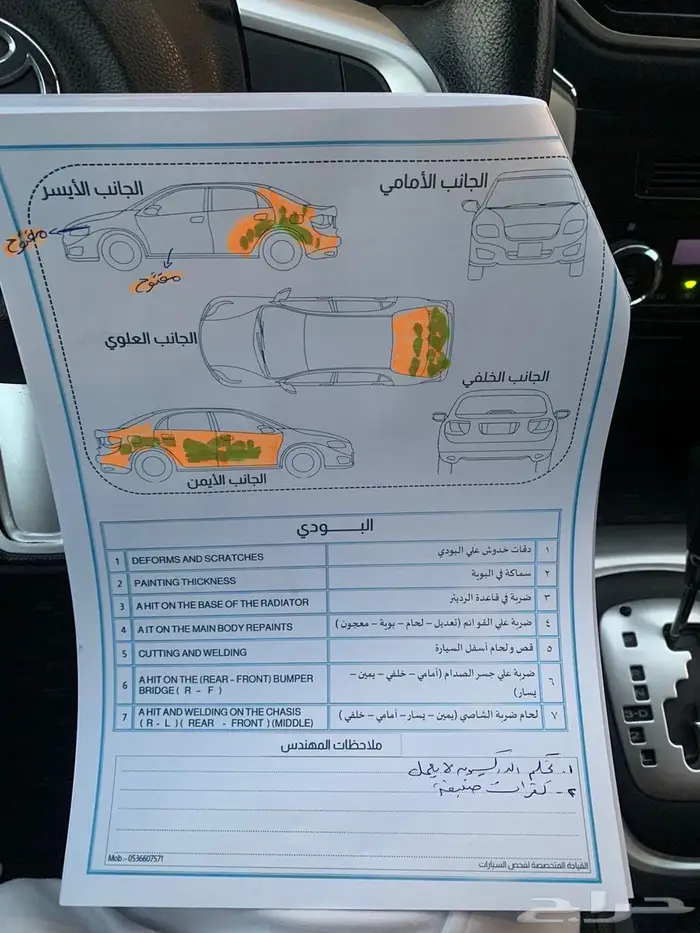 الجانب الأيسر
الجانب الأمامي
مفتوح
مفتوح
الجانب العلوي
الجانب الخلفي
الجانب الأيمن
البـــــودي
1 DEFORMS AND SCRATCHES دقات خدوش علي البودي ١
2 PAINTING THICKNESS سماكة في البوية ٢
3 A HIT ON THE BASE OF THE RADIATOR ضربة في قاعدة الرديتر ٣
4 A IT ON THE MAIN BODY REPAINTS ضربة علي القوائم (تعديل – لحام – بوية – معجون) ٤
5 CUTTING AND WELDING قص ولحام أسفل السيارة ٥
6 A HIT ON THE (REAR - FRONT) BUMPER BRIDGE ( R - F ) ضربة علي جسر الصدام (أمامي – خلفي – يمين – يسار) ٦
7 A HIT AND WELDING ON THE CHASIS ( R - L ) ( REAR - FRONT ) (MIDDLE) لحام ضربة الشاصي (يمين – يسار – أمامي – خلفي) ٧
ملاحظات المهندس
١- تحكم الدركسيون لا يعمل
٢- كفرات ضعيفة
Mob.- 0536607571
القيادة المتخصصة لفحص السيارات
حراج